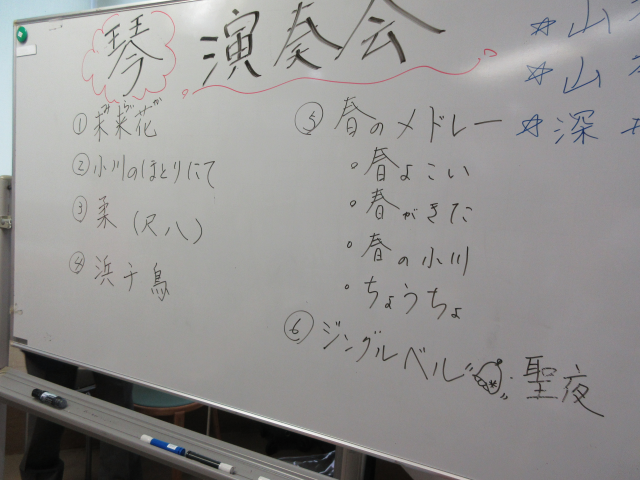 琴 演奏会
① 花
② 小川のほとりにて
③ 柔 (尺八)
④ 浜千鳥
⑤ 春のメドレー
・春よこい
・春がきた
・春の小川
・ちょうちょ
⑥ ジングルベル・聖夜
☆山
☆山
☆深